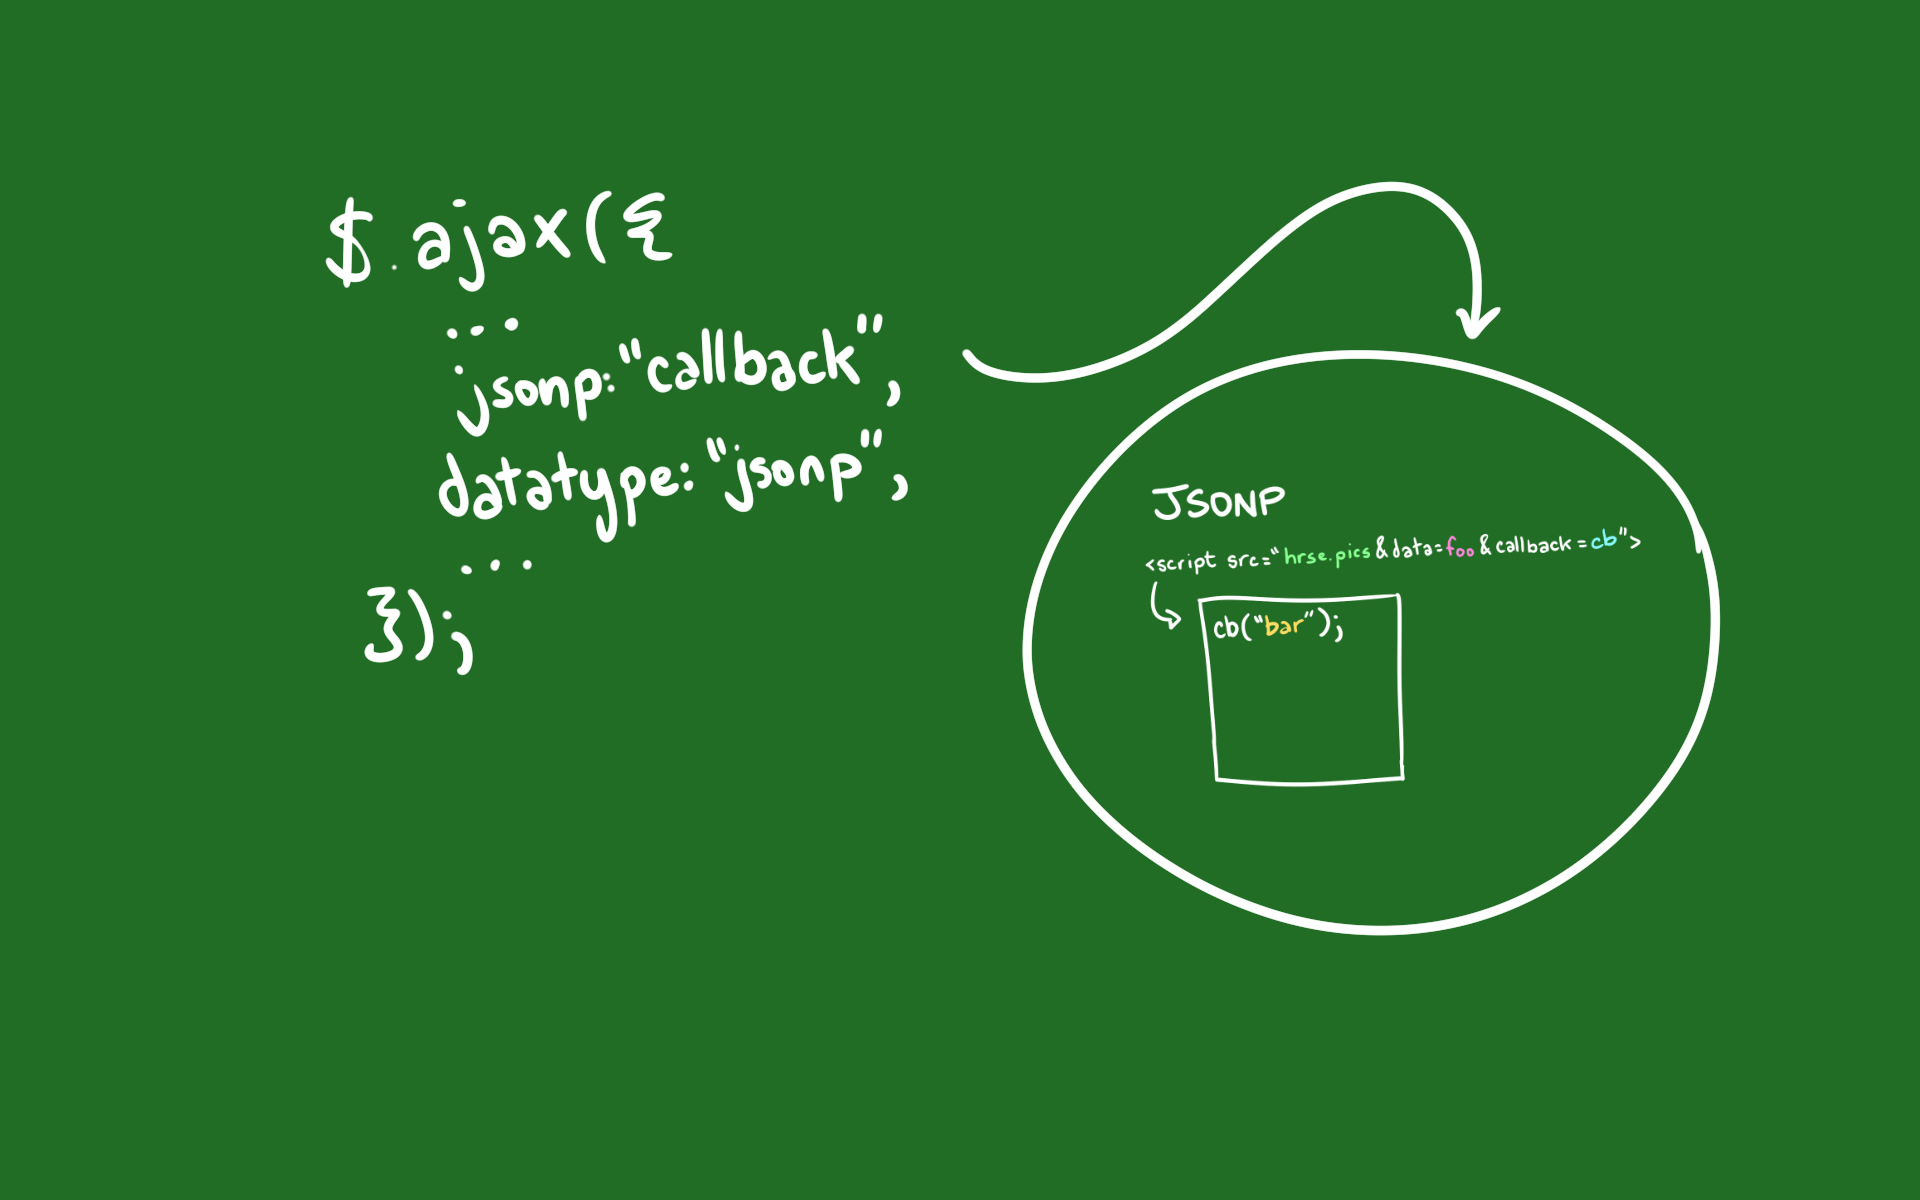 $.ajax({
...
jsonp:"callback",
datatype: "jsonp",
...
});
JSONP
<script src="hrse.pics&data=foo&callback=cb">
cb("bar");